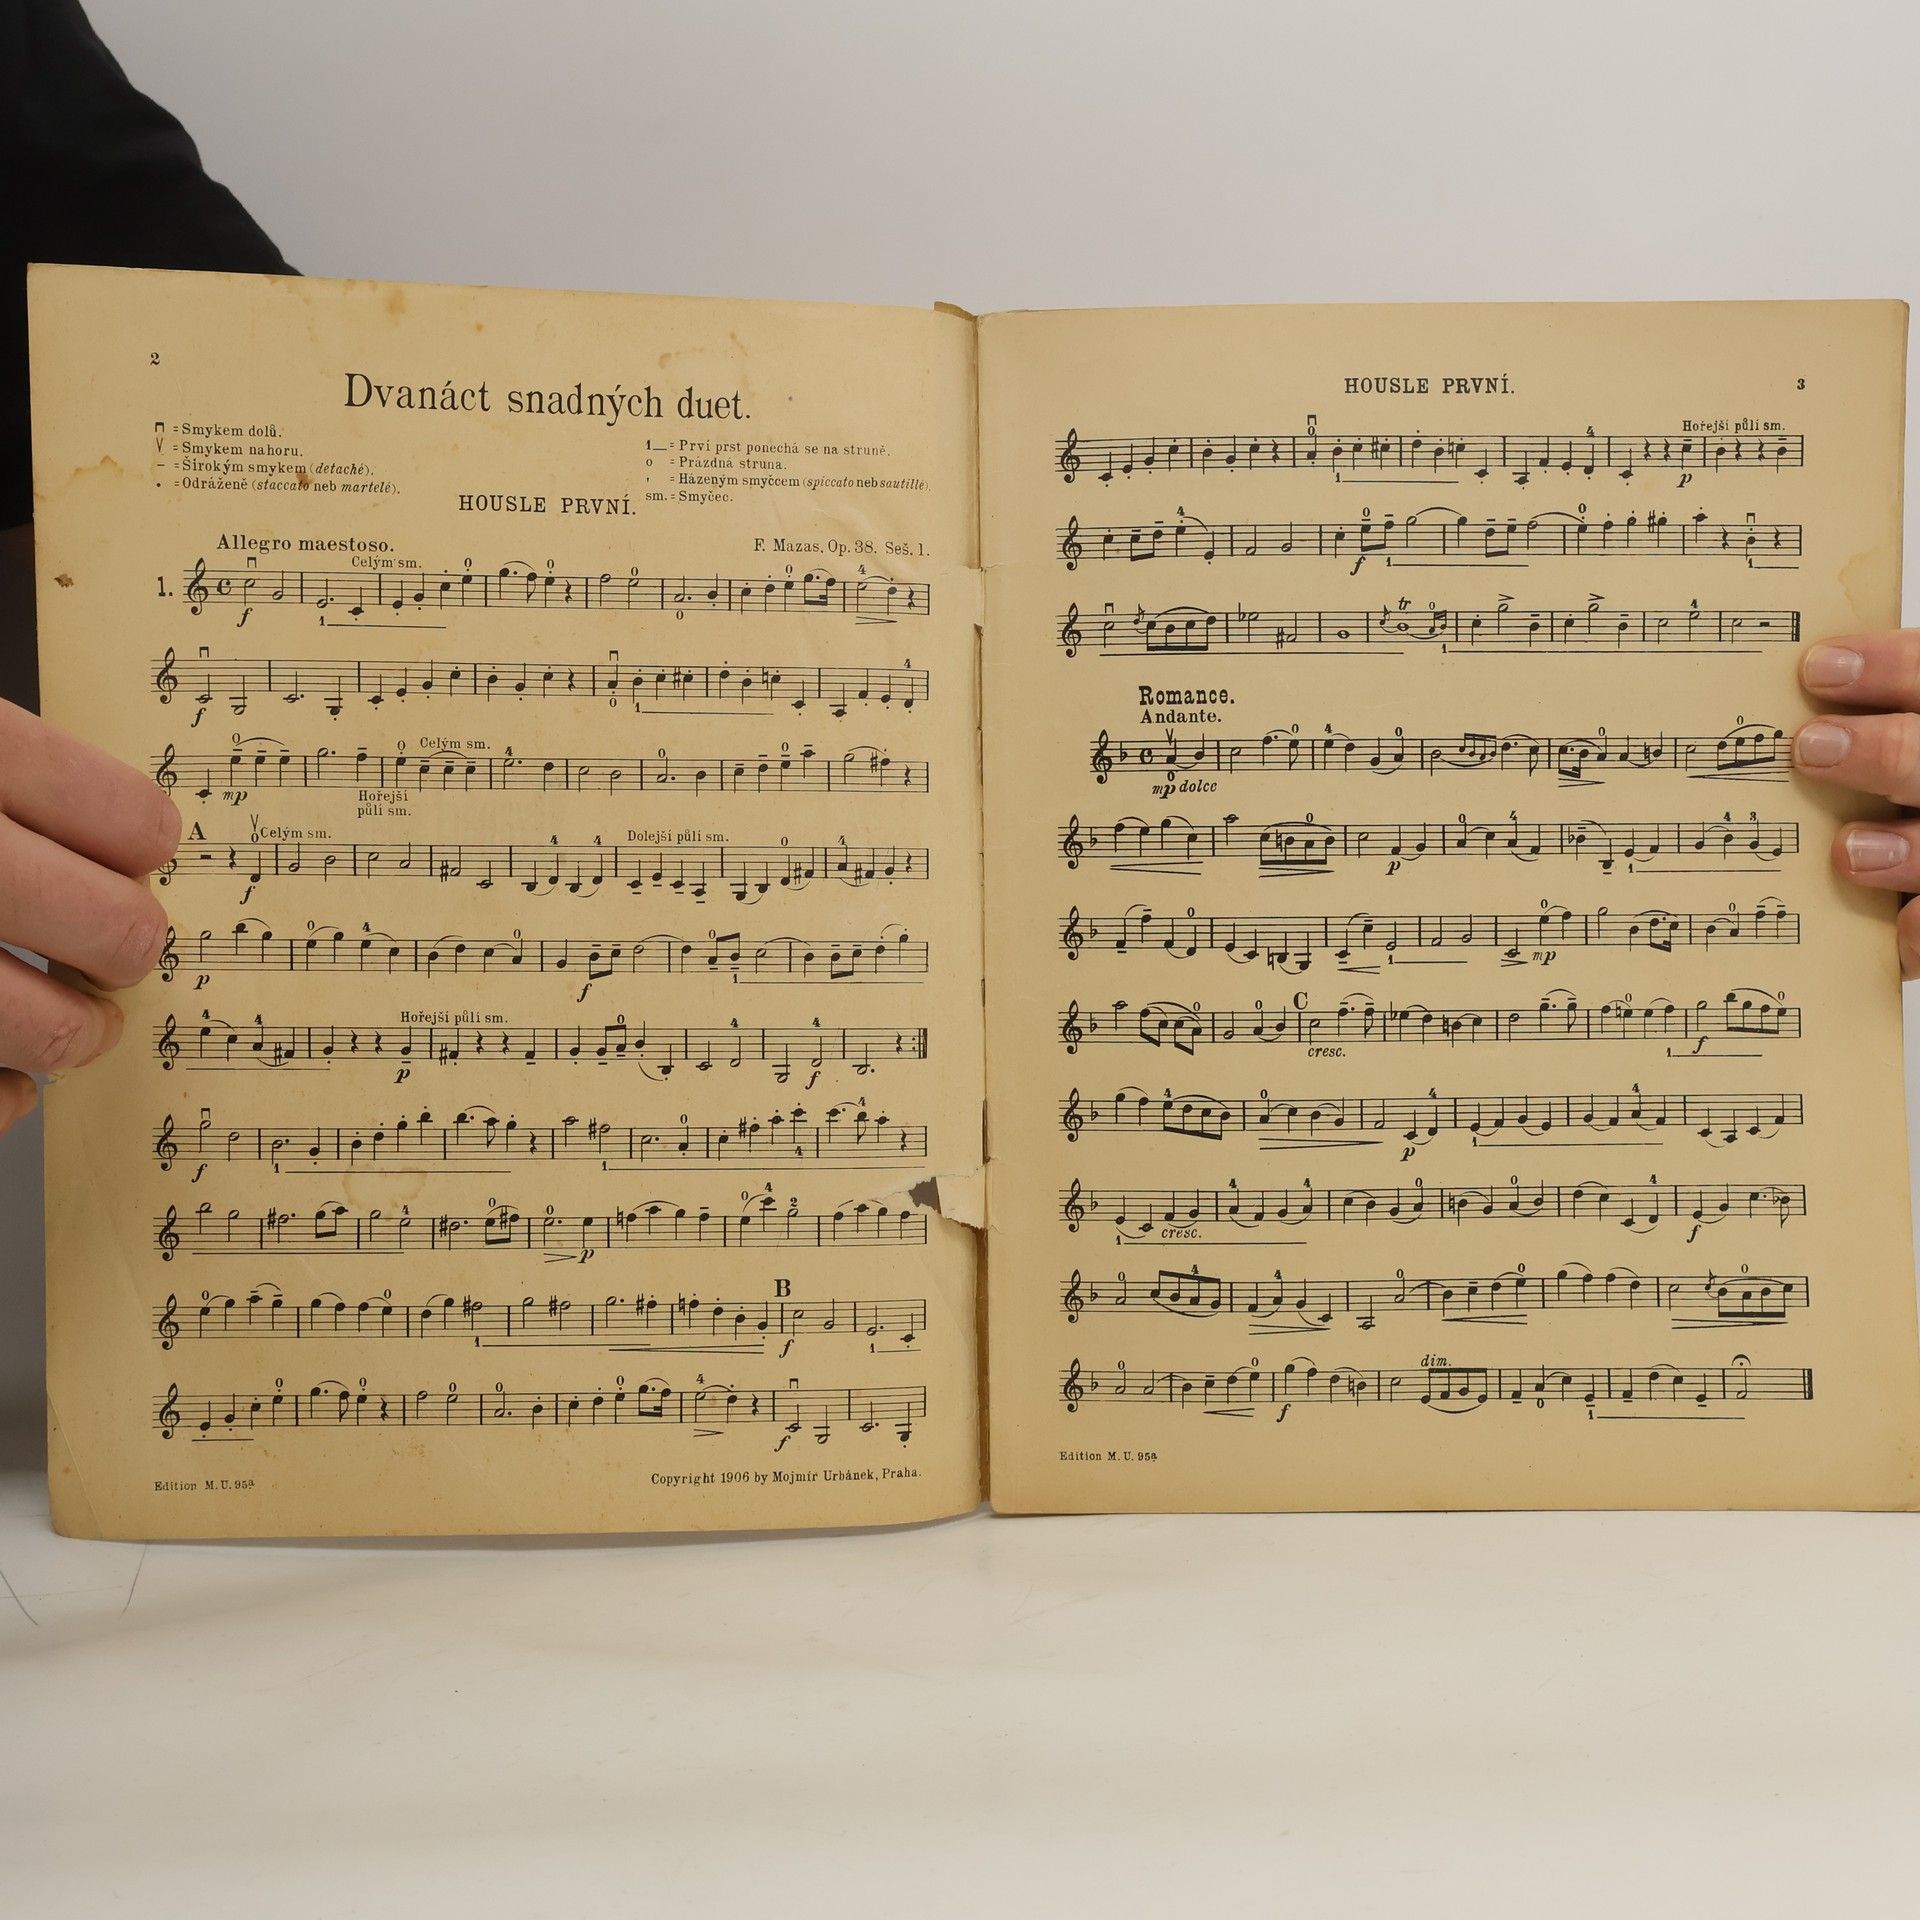 2
Dvanáct snadných duet.
= Smykem dolů.
= Smykem nahoru.
= Širokým smykem (detaché).
= Odráženě (staccato neb martelé).
1 = První prst ponechá se na struně.
o = Prázdná struna.
= Házeným smyčcem (spiccato neb sautillé).
sm. = Smyčec.
HOUSLE PRVNÍ.
Allegro maestoso.
F. Mazas, Op. 38. Seš. 1.
Celým sm.
1.
f
f
Celým sm.
mp
Hořejší
půlí sm.
A
Celým sm.
Dolejší půlí sm.
f
p
f
Hořejší půlí sm.
p
f
f
p
B
f
f
Edition M. U. 95a
Copyright 1906 by Mojmír Urbánek, Praha.
HOUSLE PRVNÍ.
3
Hořejší půlí sm.
p
f
tr
Romance.
Andante.
mp dolce
p
mp
C
cresc.
f
p
cresc.
f
dim.
f
Edition M. U. 95a